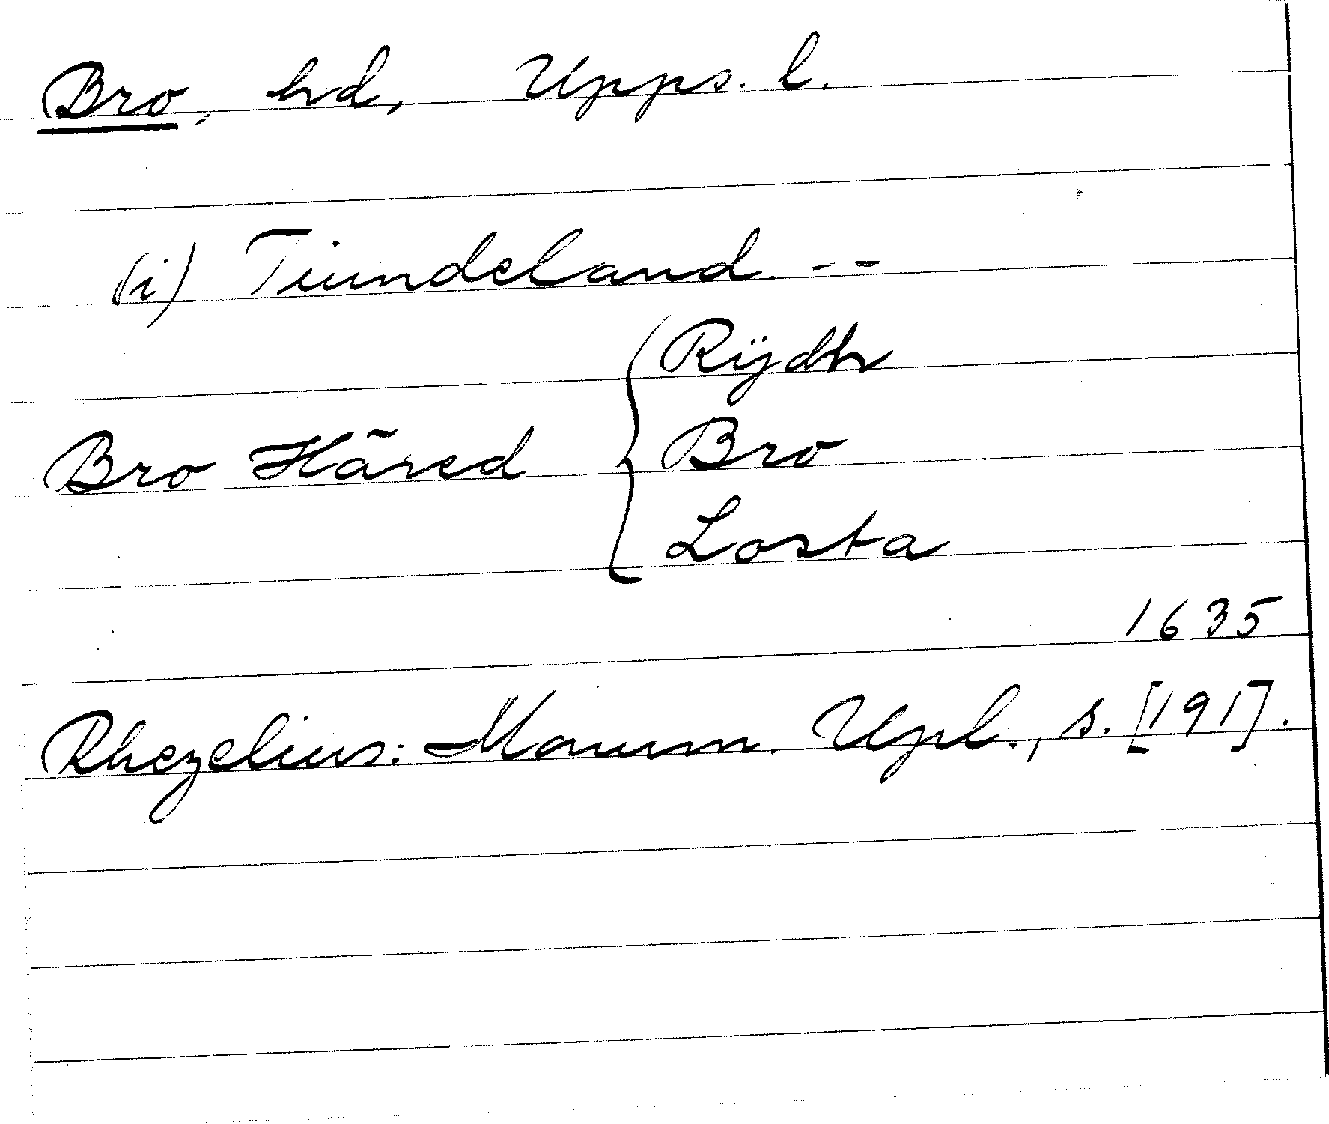 Bro, hd, Upps. l.
(i) Tiundeland --
Rÿdh
Bro Häred { Bro
Losta
1635
Rhezelius: Monum. Upl., s. [191].